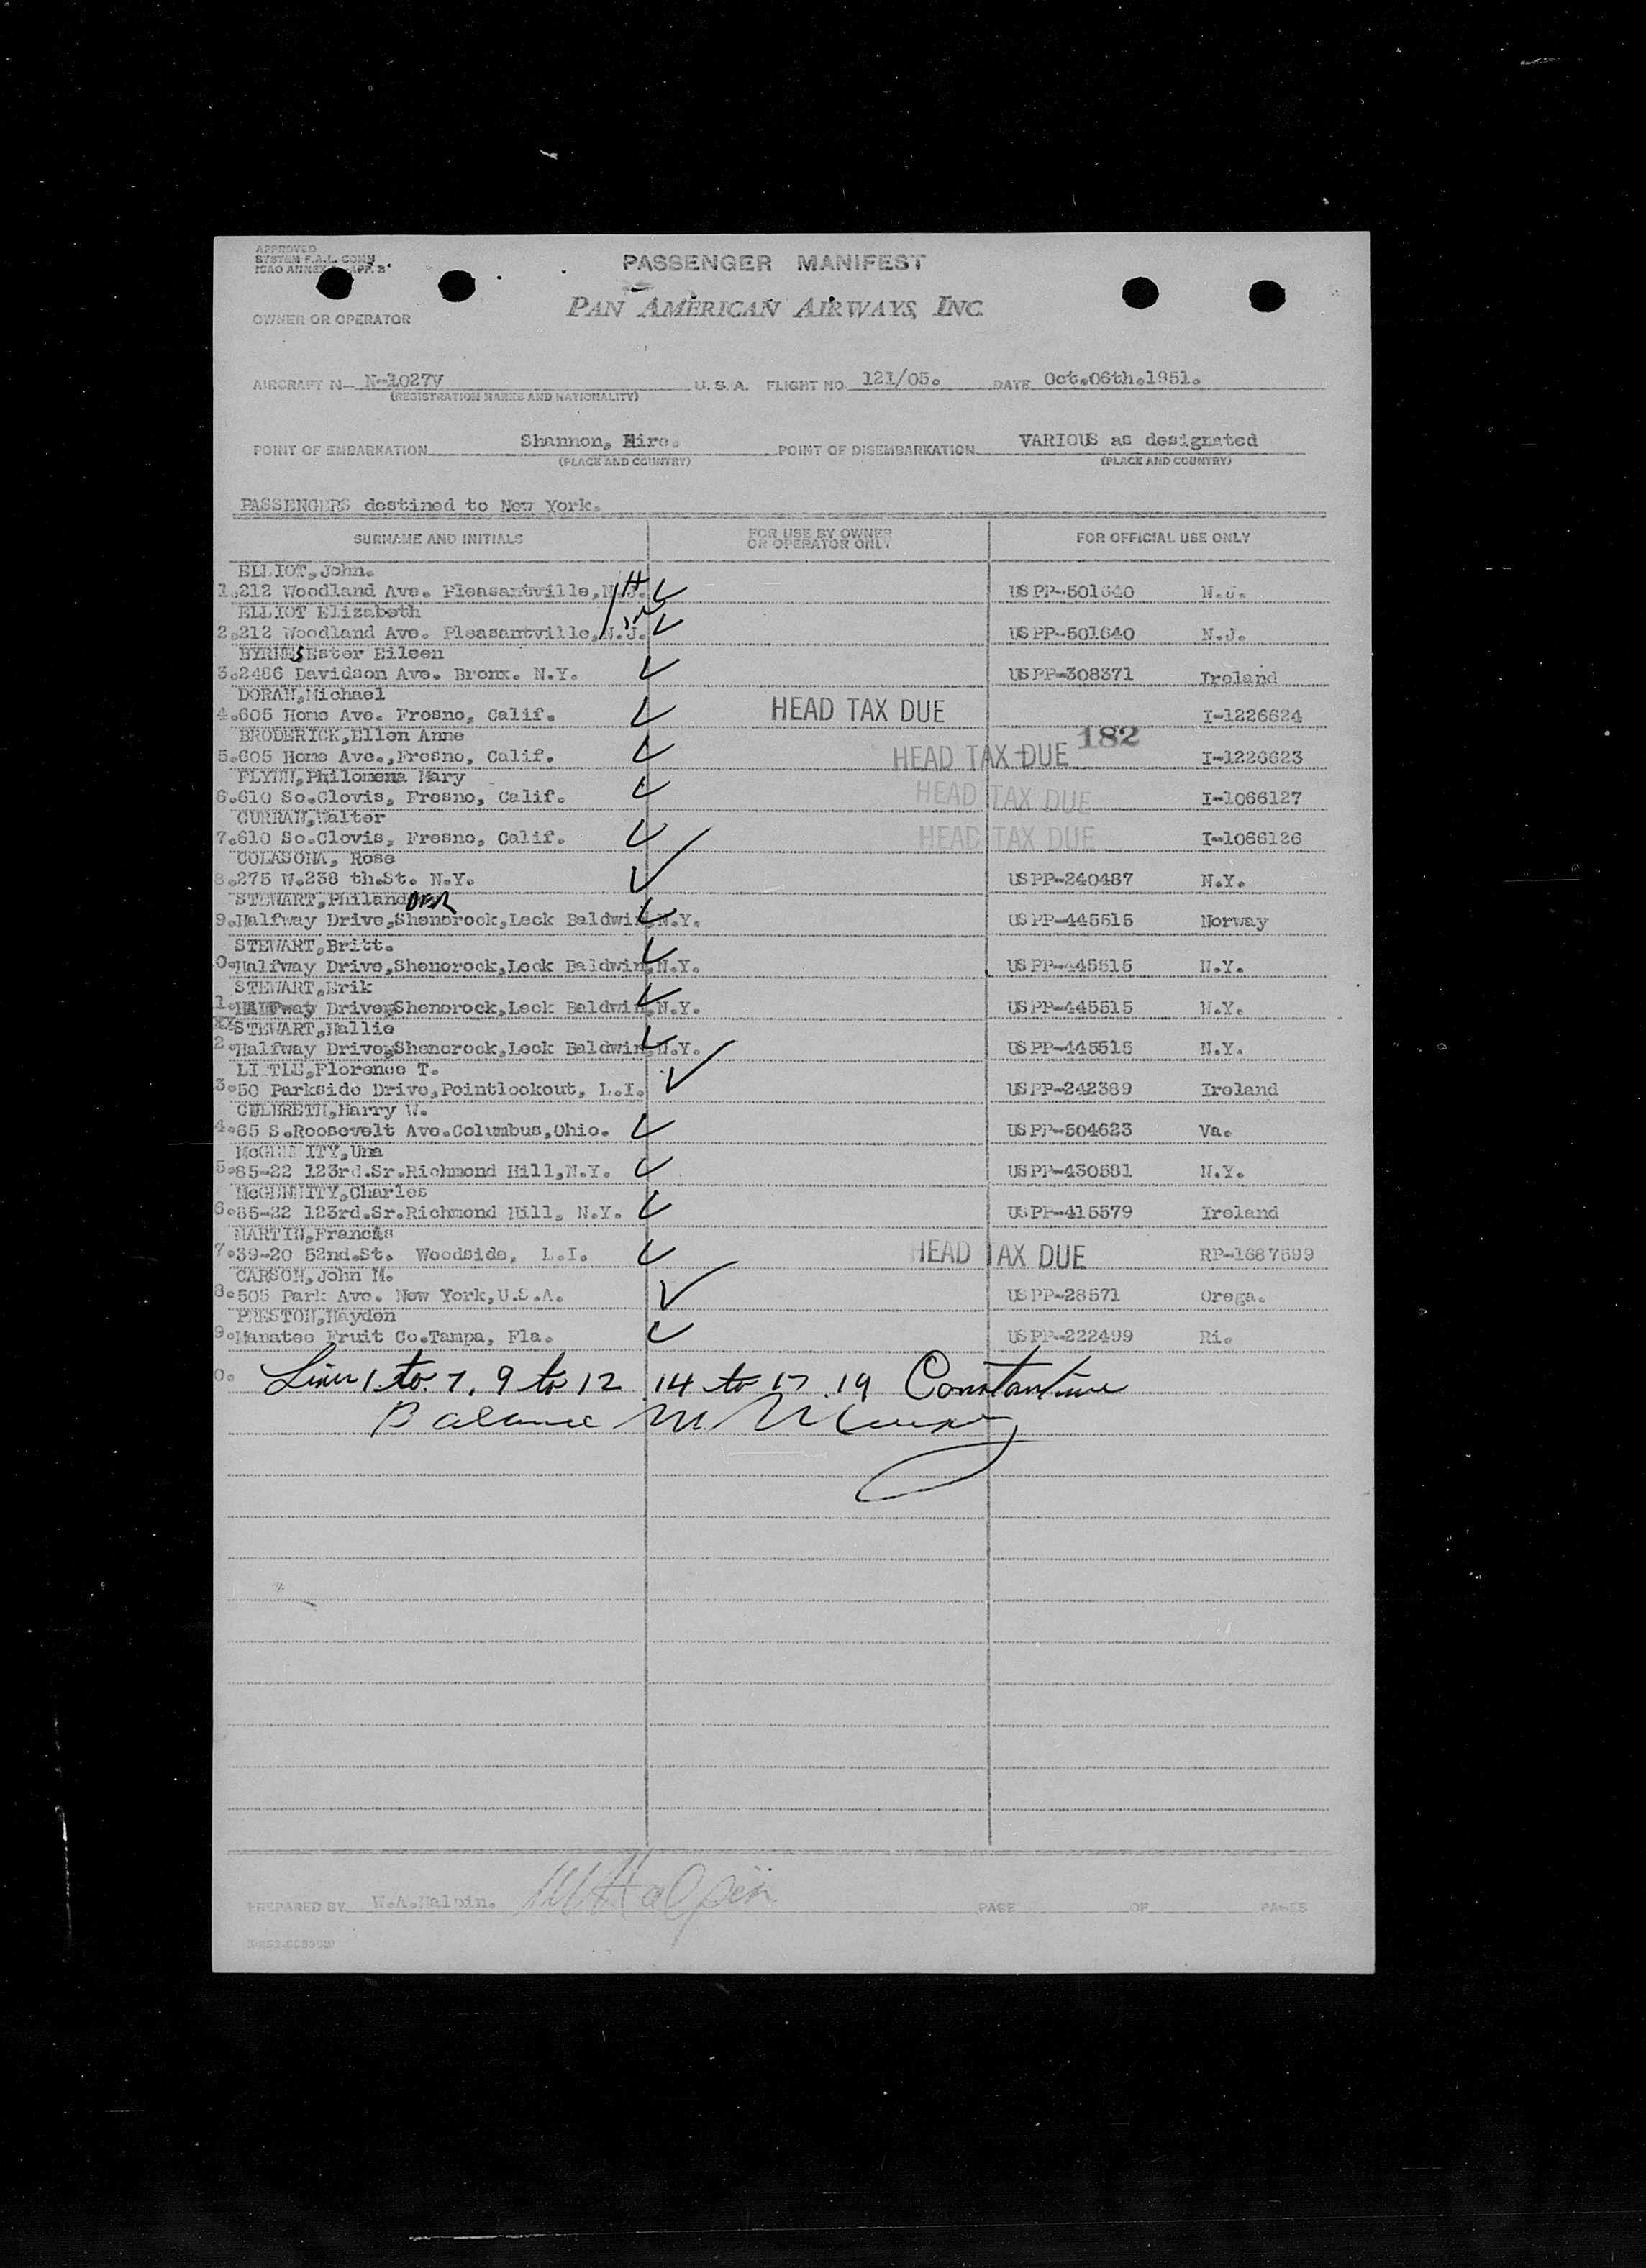 APPROVED
SYSTEM F.A.L. COMM
ICAO ANNEX APP. 2
PASSENGER MANIFEST
PAN AMERICAN AIRWAYS, INC
OWNER OR OPERATOR
AIRCRAFT N— N-1027V U. S. A. FLIGHT NO. 121/05. DATE Oct.06th.1951.
(REGISTRATION MARKS AND NATIONALITY)
POINT OF EMBARKATION Shannon, Eire. POINT OF DISEMBARKATION VARIOUS as designated
(PLACE AND COUNTRY) (PLACE AND COUNTRY)
PASSENGERS destined to New York.
SURNAME AND INITIALS FOR USE BY OWNER OR OPERATOR ONLY FOR OFFICIAL USE ONLY
ELLIOT,John.
1.212 Woodland Ave. Pleasantville,N.J. US PP-501640 N.J.
ELLIOT Elizabeth
2.212 Woodland Ave. Pleasantville,N.J. US PP-501640 N.J.
BYRNES Ester Eileen
3.2486 Davidson Ave. Bronx. N.Y. US PP-308371 Ireland
DORAN,Michael
4.605 Home Ave. Fresno, Calif. HEAD TAX DUE I-1226624
BRODERICK,Ellen Anne 182
5.605 Home Ave.,Fresno, Calif. HEAD TAX DUE I-1226623
FLYNN,Philomena Mary
6.610 So.Clovis, Fresno, Calif. HEAD TAX DUE I-1066127
CURRAN,Walter
7.610 So.Clovis, Fresno, Calif. HEAD TAX DUE I-1066126
COLASONA, Rose
8.275 W.238 th.St. N.Y. US PP-240487 N.Y.
STEWART,PhilandDER
9.Halfway Drive,Shenorock,Lock Baldwin,N.Y. US PP-445515 Norway
STEWART,Britt.
0.Halfway Drive,Shenorock,Lock Baldwin,N.Y. US PP-445515 N.Y.
STEWART,Erik
1.HALFway Drive,Shenorock,Lock Baldwin,N.Y. US PP-445515 N.Y.
XXSTEWART,Hallie
2.Halfway Drive,Shenorock,Lock Baldwin,N.Y. US PP-445515 N.Y.
LITTLE,Florence T.
3.50 Parkside Drive,Pointlookout, L.I. US PP-242389 Ireland
CULBRETH,Harry W.
4.65 S.Roosevelt Ave.Columbus,Ohio. US PP-504623 Va.
McGENNITY,Una
5.85-22 123rd.Sr.Richmond Hill,N.Y. US PP-430581 N.Y.
McGENNITY,Charles
6.85-22 123rd.Sr.Richmond Hill, N.Y. US PP-415579 Ireland
MARTIN,Francis
7.39-20 52nd.St. Woodside, L.I. HEAD TAX DUE RP-1687599
CARSON,John M.
8.505 Park Ave. New York,U.S.A. US PP-28571 Orega.
PRESTON,Hayden
9.Manatee Fruit Co.Tampa, Fla. US PP-222499 Ri.
0. Lines 1 to 7, 9 to 12 14 to 17 19 Constantine
Balance M.
PREPARED BY W.A.Halpin. WHalpin PAGE OF PAGES